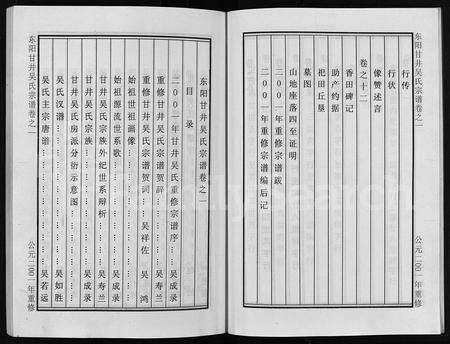 东阳甘井吴氏宗谱卷之一
公元二00一年重修
行传
行状
像赞述言
卷之十二
香田碑记
助产约据
祀田丘垦
墓图
山地座落四至证明
二00一年重修宗谱跋
二00一年重修宗谱编后记
东阳甘井吴氏宗谱卷之一
目录
二00一年甘井吴氏重修宗谱序……吴成录
重修甘井吴氏宗谱贺辞……吴寿兰
重修甘井吴氏宗谱贺词……吴祥佐 吴鸿
始祖世祖画像……
始祖源流世系歌……吴成录
甘井吴氏宗族外纪世系辩析……吴寿兰
甘井吴氏宗族……吴成录
甘井吴氏房派分衍示意图……
吴氏汉谱……吴如胜
吴氏主宗唐谱……吴若远
东阳甘井吴氏宗谱卷之一
公元二00一年重修